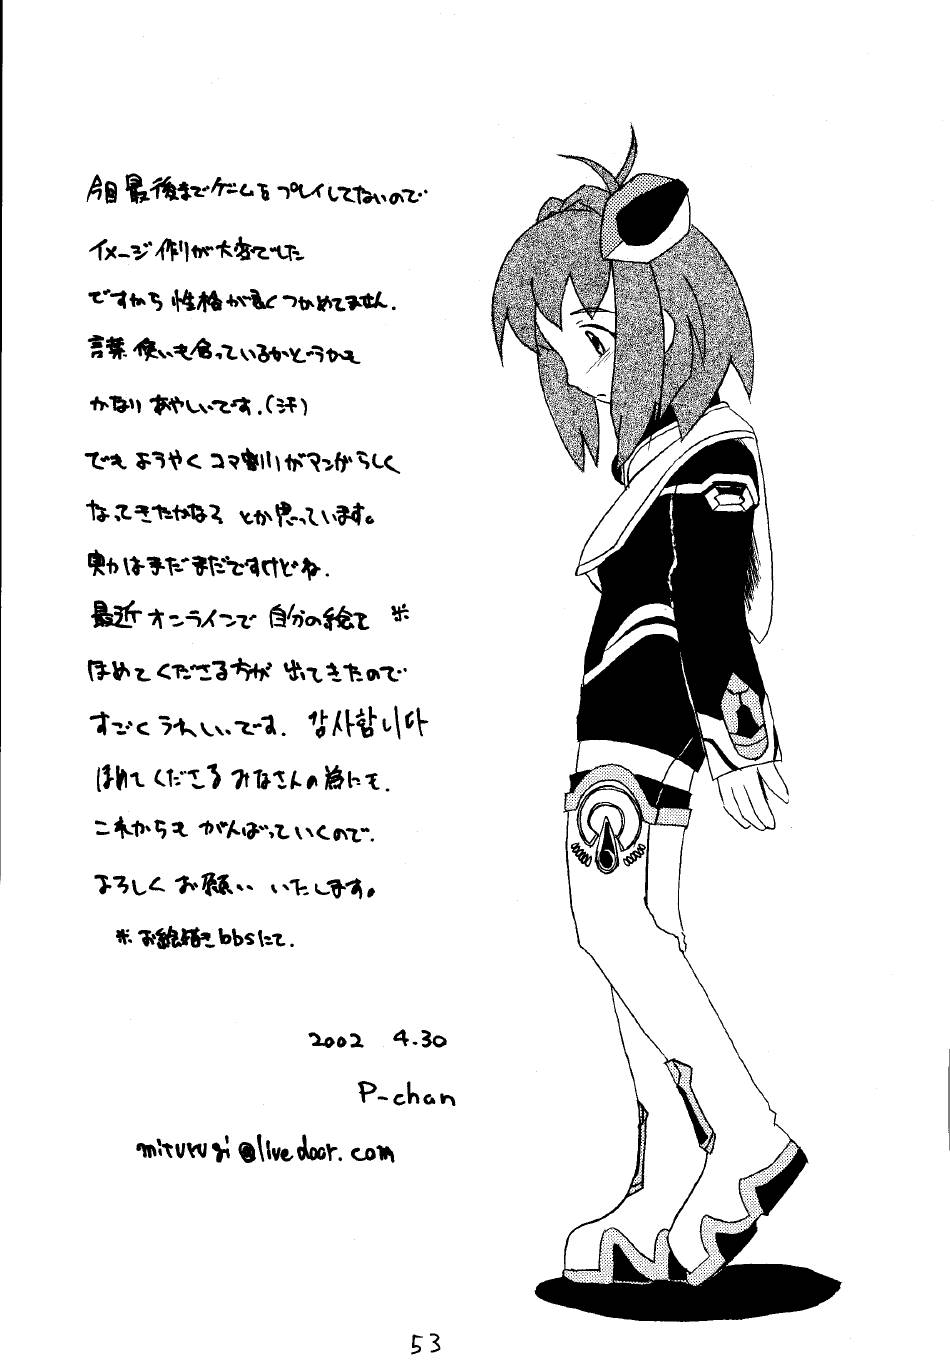 今回最後までゲームをプレイしてないので
イメージ作りが大変でした
ですから性格が良くつかめてません.
言葉使いも合っているかどうかも
かなりあやしいです.(汗)
でもようやくコマ割りがマンガらしく
なってきたかなろとか思っています。
実力はまだまだですけどね.
最近オンラインで自分の絵を ※
ほめてくださる方が出てきたので
すごくうれしいです. 감사합니다
ほめてくださるみなさんの為にも.
これからもがんばっていくので.
よろしくお願いいたします。
※お絵描きbbsにて.
2002 4.30
P-chan
miturugi@livedoor.com
53